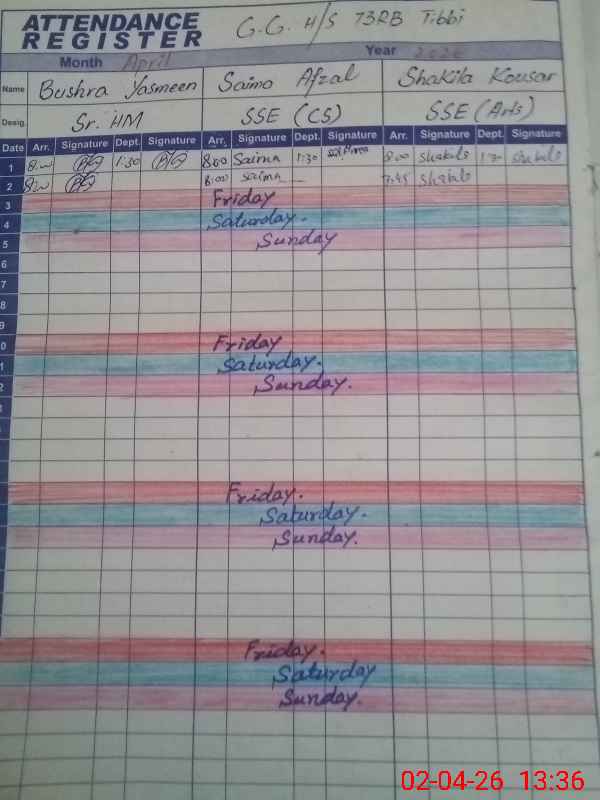 ATTENDANCE REGISTER
G.G. H/S 73RB Tibbi
Month April Year 2026
Name Bushra Yasmeen Saima Afzal Shakila Kousar
Desig. Sr. HM SSE (CS) SSE (Arts)
Date Arr. Signature Dept. Signature Arr. Signature Dept. Signature Arr. Signature Dept. Signature
1 8:00 1:30 8:00 Saima 1:30 8:00 Shakila 1:30 Shakila
2 8:00 8:00 Saima 7:45 Shakila
3 Friday
4 Saturday.
5 Sunday
6
7
8
9
0 Friday
1 Saturday.
2 Sunday.
Friday.
Saturday.
Sunday.
Friday.
Saturday
Sunday.
02-04-26 13:36